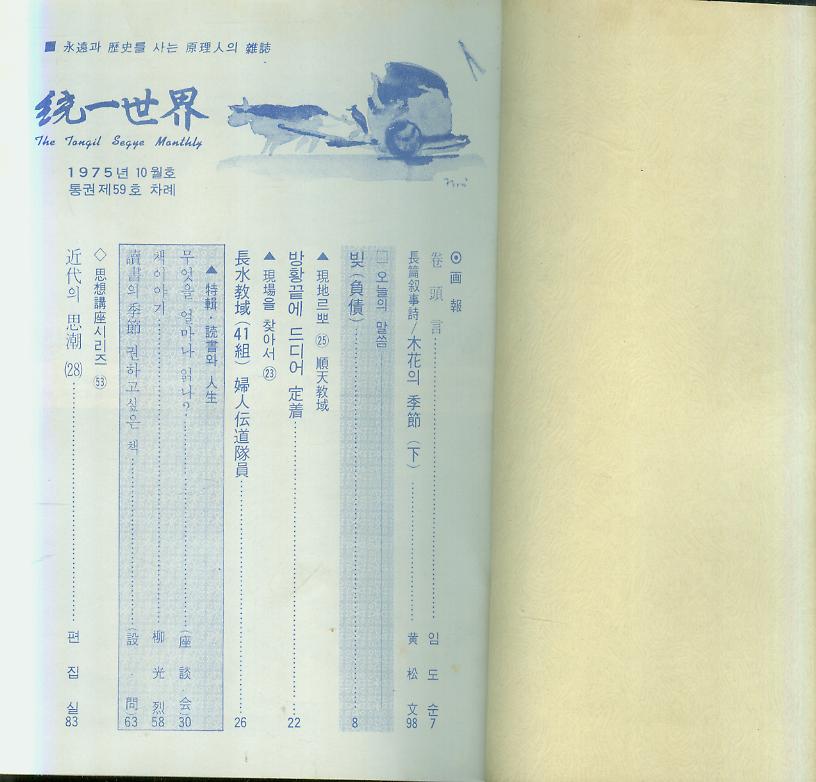 ■ 永遠과 歷史를 사는 原理人의 雜誌
統一世界
The Tongil Segye Monthly
1975년 10월호
통권 제59호 차례
◉ 画報
卷頭言 임도순 7
長篇叙事詩/木花의 季節 (下) 黄松文 98
□ 오늘의 말씀
빚(負債) 8
▲ 現地르뽀 ㉕ 順天教域
방황끝에 드디어 定着 22
▲ 現場을 찾아서 ㉓
長水教域(41組) 婦人伝道隊員 26
▲ 特輯·読書와 人生
무엇을 얼마나 읽나? (座談会) 30
책이야기 柳光烈 58
讀書의 季節 권하고싶은 책 (設·問) 63
◇ 思想講座시리즈 53
近代의 思潮 (28) 편집실 83